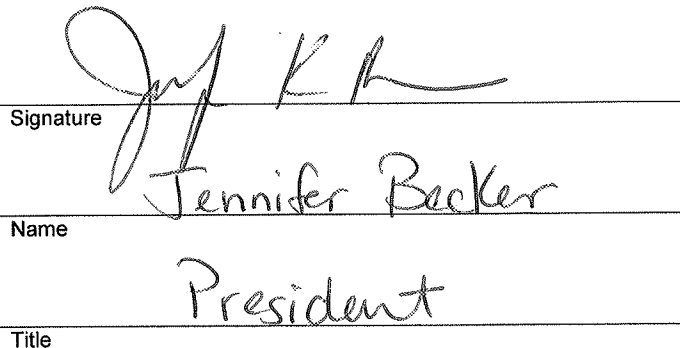 Signature
Jennifer Becker
Name
President
Title